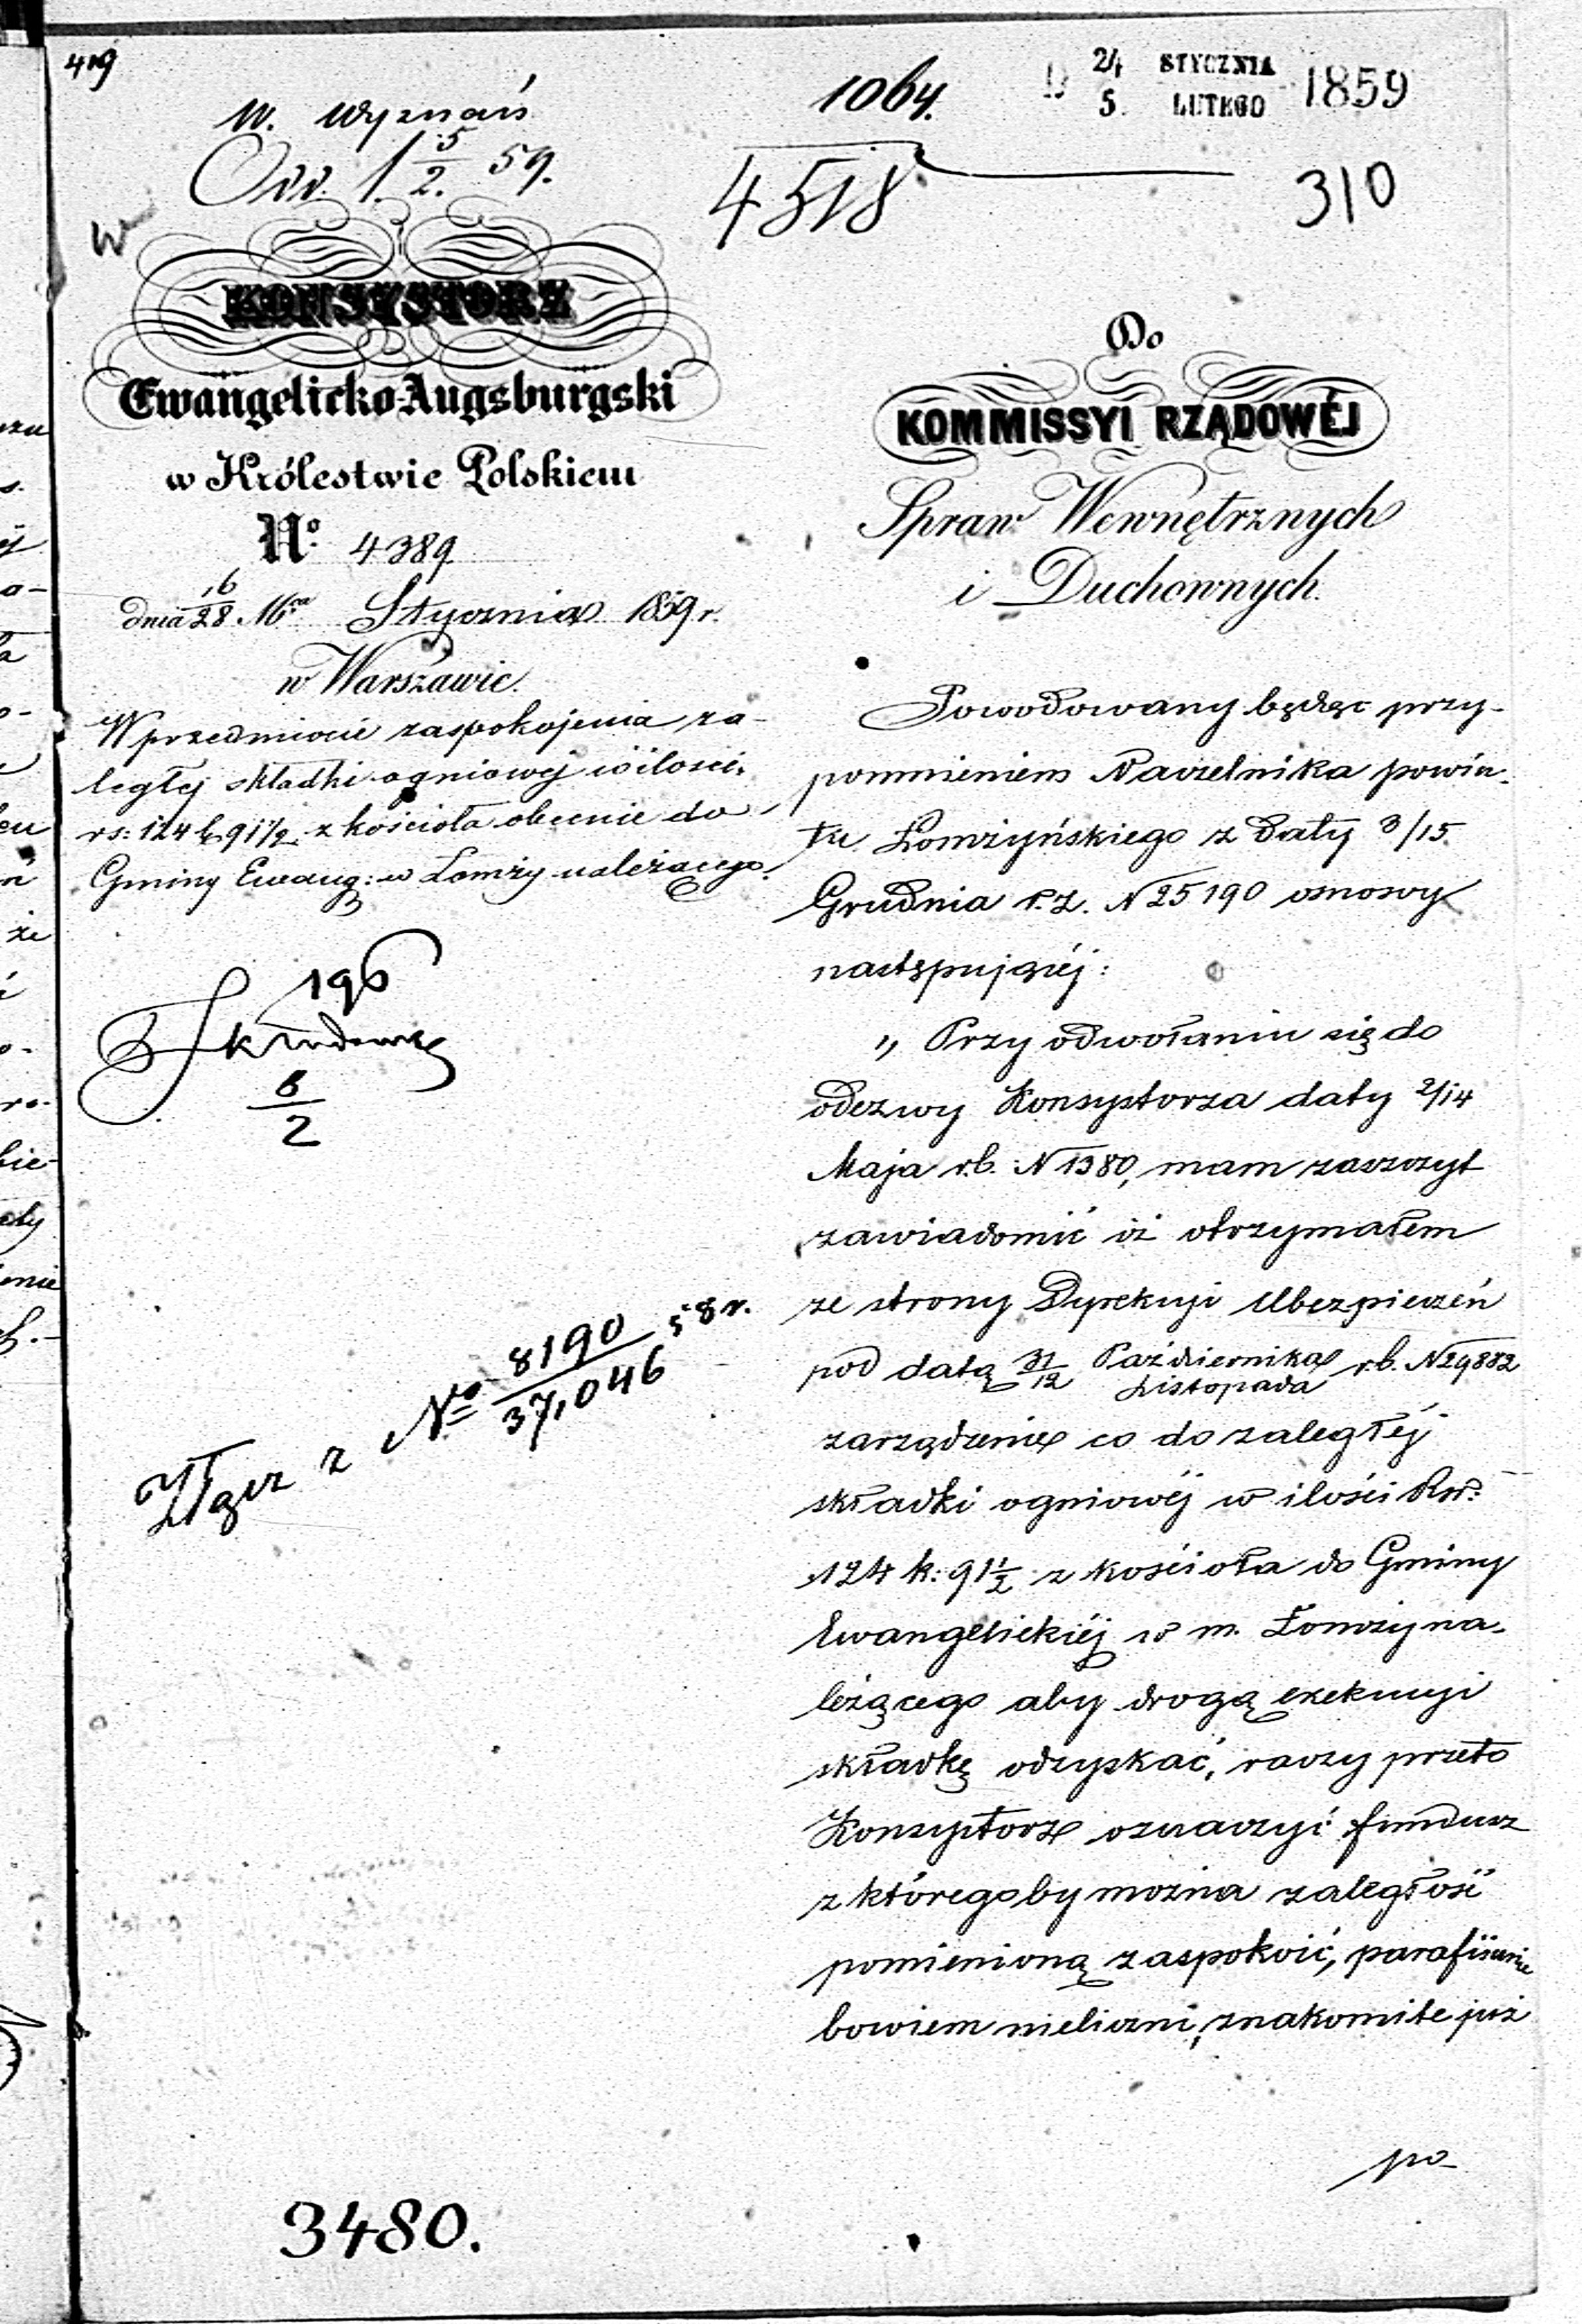 419
W. Wyznań
1064.
24 STYCZNIA
5. LUTEGO 1859
5/2. 59.
4518
310
W
KONSYSTORZ
Ewangelicko-Augsburgski
w Królestwie Polskiem
No. 4389
dnia 16/28 Mca Stycznia 1859 r.
w Warszawie.
W przedmiocie zaspokojenia za-
ległej składki ogniowej w ilości
rs: 124 k 91½ z kościoła obecnie do
Gminy Ewang: w Łomży należącego.
196
6/2
Złącz z No 8190/37,046 58 r.
3480.
Do
KOMMISSYI RZĄDOWÉJ
Spraw Wewnętrznych
i Duchownych.
Powodowany będąc przy-
pomnieniem Naczelnika powia-
tu Łomżyńskiego z daty 3/15
Grudnia r. z. N 25190 osnowy
następującéj:
„ Przy odwołaniu się do
odezwy Konsystorza daty 2/14
Maja r.b. N 1380, mam zaszczyt
zawiadomić iż otrzymałem
ze strony Dyrekcyi Ubezpieczeń
pod datą 31/12 Października/Listopada r.b. N 29882
zarządzenie co do zaległéj
składki ogniowéj w ilości Rsr:
124 k: 91½ z kościoła do Gminy
Ewangelickiéj w m. Łomży na-
leżącego aby drogą exekucyi
składkę odzyskać, raczy przeto
Konsystorz oznaczyć fundusz
z któregoby można zaległość
pomienioną zaspokoić, parafiianie
bowiem nieliczni, znakomite już
po